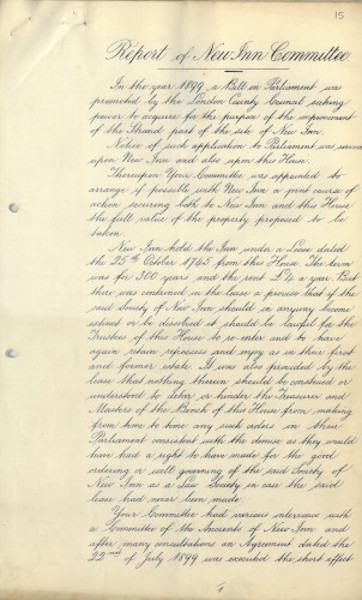 15
Report of New Inn Committee
In the year 1899, a Bill in Parliament was
promoted by the London County Council seeking
power to acquire for the purpose of the improvement
of the Strand part of the site of New Inn.
Notice of such application to Parliament was served
upon New Inn and also upon this House.
Thereupon Your Committee was appointed to
arrange if possible with New Inn a joint course of
action securing both to New Inn and this House
the full value of the property proposed to be
taken.
New Inn held the Inn under a Lease dated
the 25th October 1765 from this House. The term
was for 300 years and the rent £4 a year. But
there was contained in the lease a proviso that if the
said Society of New Inn should in anyway become
extinct or be dissolved it should be lawful for the
Trustees of this House to re-enter and to have
again retain repossess and enjoy as in their first
and former estate. It was also provided by the
lease that nothing therein should be construed or
understood to debar or hinder the Treasurer and
Masters of the Bench of this House from making
from time to time any such orders in their
Parliament consistent with the demise as they would
have had a right to have made for the good
ordering or well governing of the said Society of
New Inn as a Law Society in case the said
lease had never been made.
Your Committee had various interviews with
a Committee of the Ancients of New Inn and
after many consultations an Agreement dated the
22nd of July 1899 was executed the short effect